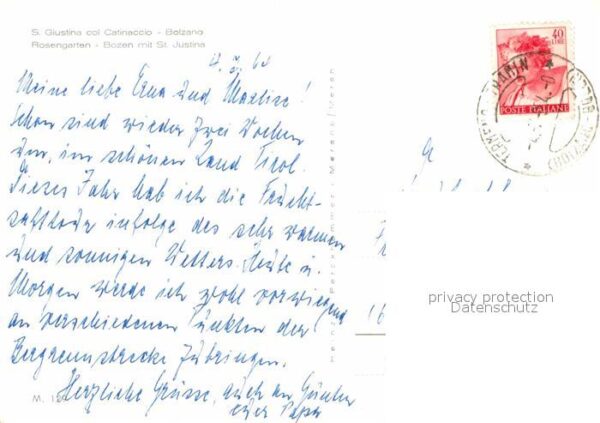 S. Giustina col Catinaccio - Bolzano
Rosengarten - Bozen mit St. Justina
Meine liebe Erna und Marlise!
Schon sind wieder zwei Wochen
um, im schönen Land Tirol.
Dieses Jahr hab ich die
infolge des sehr warmen
und sonnigen Wetters. Heute u.
Morgen werde ich wohl vorwiegend
an verschiedenen Punkten der
Bergrennstrecke zubringen.
Herzliche Grüsse, auch an Günther
euer Papa
40
LIRE
POSTE ITALIANE
privacy protection
Datenschutz